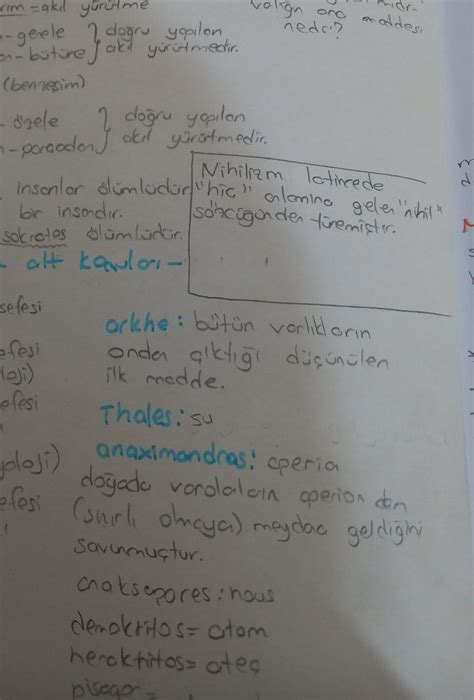 ım = akıl yürütme
- genele } doğru yapılan
n - bütüne } akıl yürütmedir.
(benzeşim)
- özele } doğru yapılan
n - parçadan } akıl yürütmedir.
varlığın ana maddesi
nedir?
insanlar ölümlüdür
bir insandır.
sokrates ölümlüdür.
Nihilizm latincede
"hiç" alamına gelen "nihil"
sözcüğünden türemiştir.
- alt kavları -
sefesi
efesi
loji)
efesi
yoloji)
efesi
arkhe: bütün varlıkların
ondan çıktığı düşünülen
ilk madde.
Thales: su
anaximandros: aperia
doğada varolaların aperion dan
(sınırlı olmaya) meydac geldiğini
savunmuştur.
anaksagores: nous
demokritos = atom
heraktitos = ateş
pisagor =